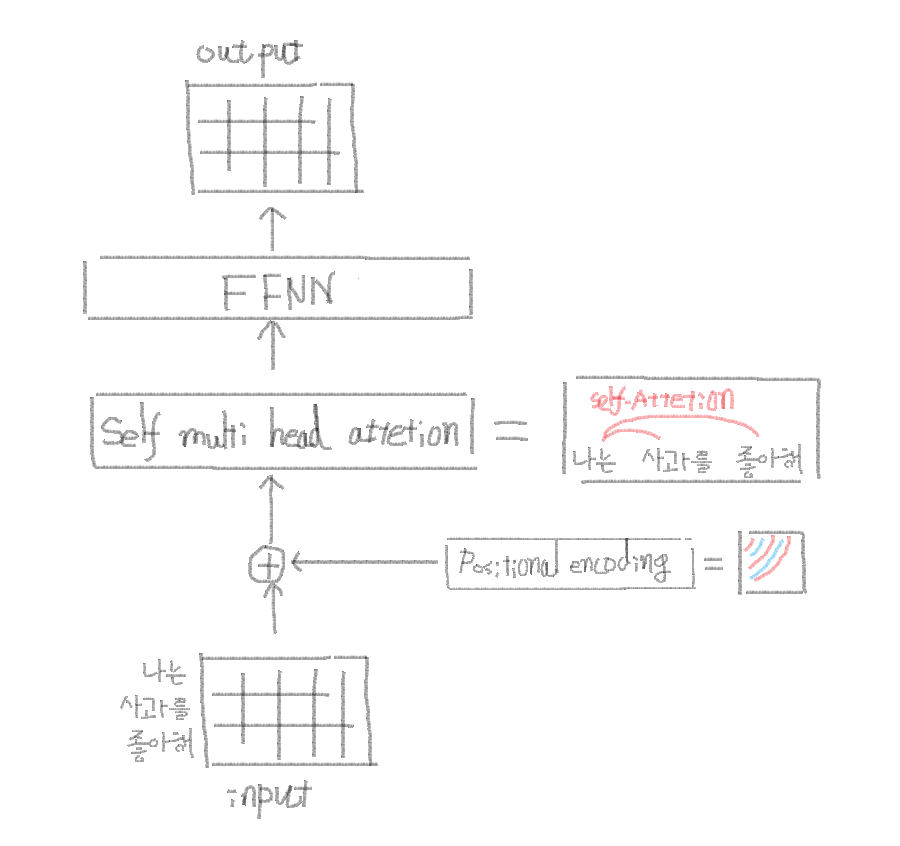 output
FFNN
Self multi head attetion
=
self-Attetion
나는 사과를 좋아해
+
Positional encoding
=
나는
사과를
좋아해
input